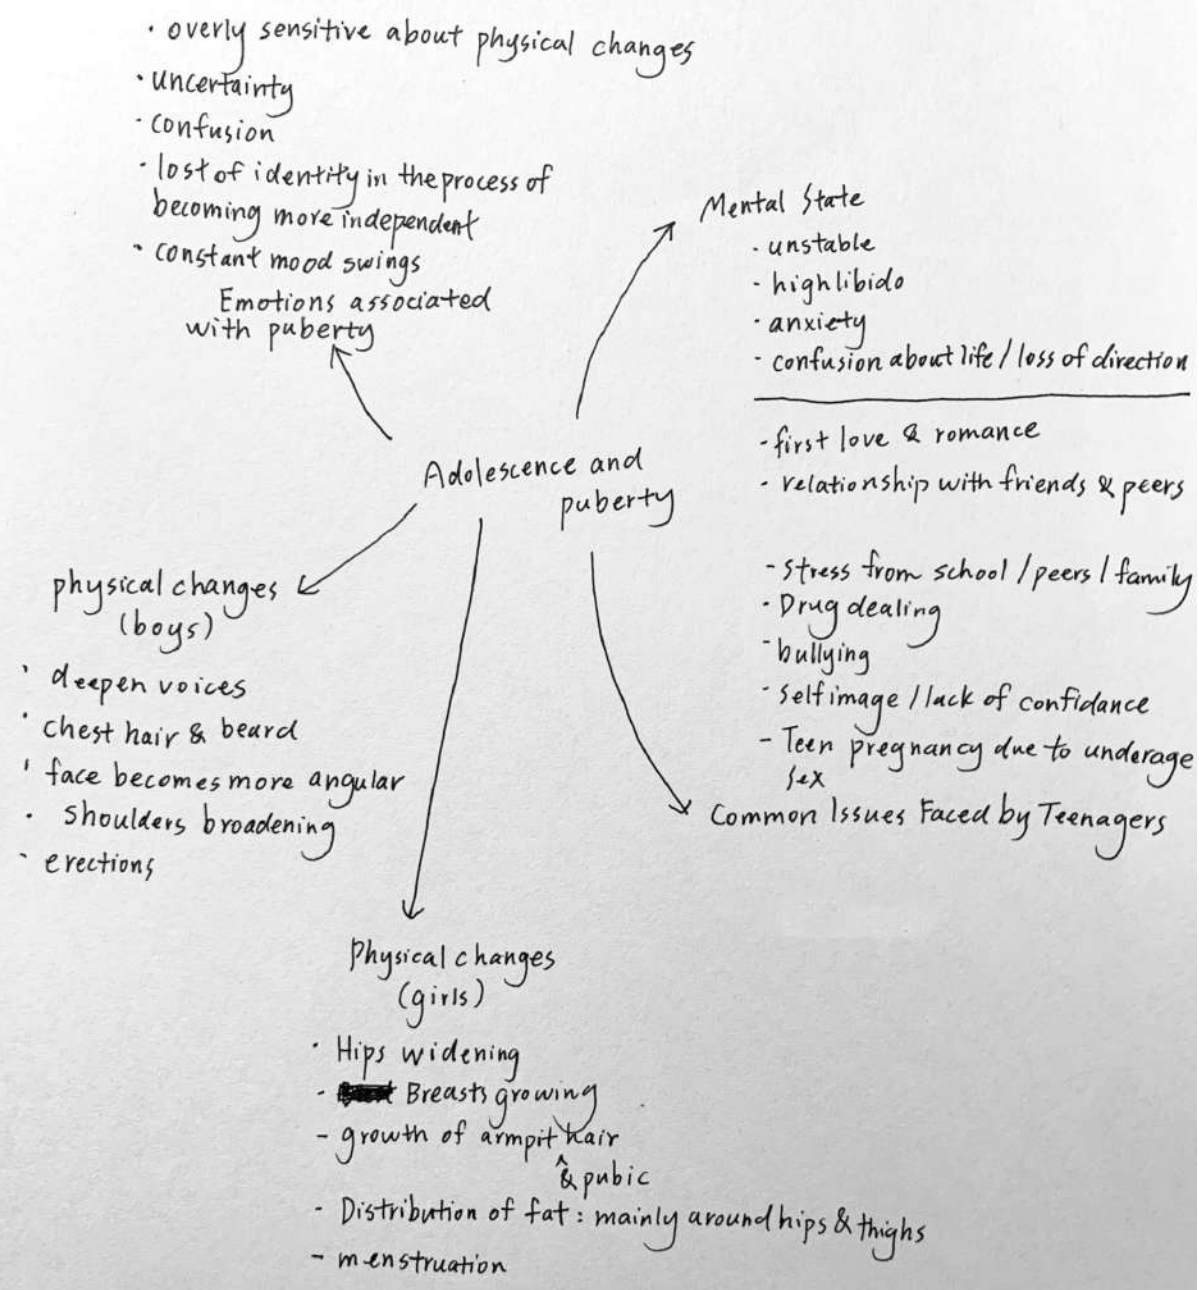 · overly sensitive about physical changes
· uncertainty
· confusion
· lost of identity in the process of
becoming more independent
· constant mood swings
Emotions associated
with puberty
Mental State
· unstable
· high libido
· anxiety
· confusion about life / loss of direction
· first love & romance
· relationship with friends & peers
- stress from school / peers / family
· Drug dealing
- bullying
- self image / lack of confidance
- Teen pregnancy due to underage
sex
Common Issues Faced by Teenagers
Adolescence and
puberty
physical changes
(boys)
· deepen voices
· chest hair & beard
· face becomes more angular
· shoulders broadening
· erections
Physical changes
(girls)
· Hips widening
- Breasts growing
- growth of armpit ^ hair
& pubic
- Distribution of fat : mainly around hips & thighs
- menstruation